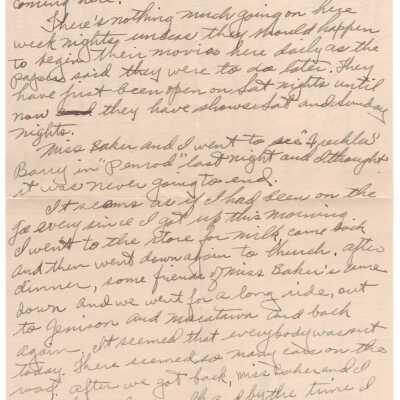 coming here.
There's nothing much going on here
week nights, unless they should happen
to begin their movies here daily as the
papers said they were to do later. They
have just been open on Sat nights until
now and they have shows Sat and Sunday
nights.
Miss Baker and I went to see "Freckles"
Barry in "Penrod" last night and I thought
it was never going to end.
It seems as if I had been on the
go ever since I got up this morning.
I went to the store for milk, came back
and then went down again to church. After
dinner, some friends of Miss Baker's came
down and we went for a long ride, out
to Jenison and Macatawa and back
again. It seemed that everybody was out
today. There seemed so many cars on the
road. After we got back, Miss Baker and I
and by the time I